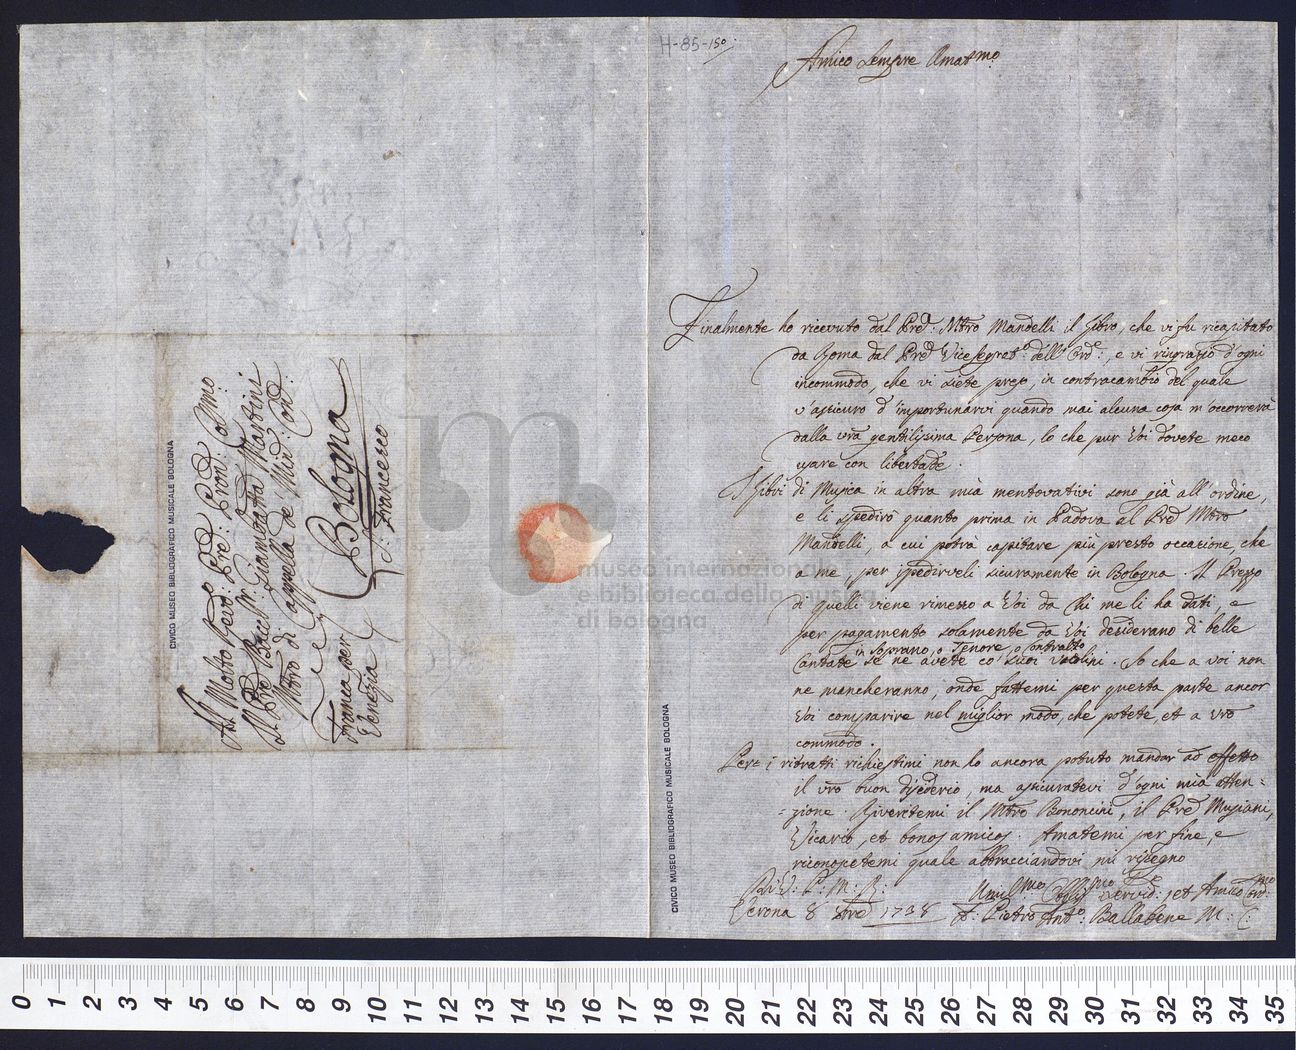 H-85-150
Amico sempre Amatmo
Finalmente ho ricevuto dal Pre Mtro Mandelli il libro, che vi fu ricapitato
da Roma dal Pre Vicesegret.o dell'Ord:, e vi ringrazio d'ogni
incommodo, che vi siete preso, in contracambio del quale
v'assicuro d'importunarvi quando mai alcuna cosa m'occorrerà
dalla vra gentilissima Persona, lo che pur Voi dovete meco
usare con libertade.
I libri di Musica in altra mia mentovativi sono già all'ordine,
e li spedirò quanto prima in Padova al Pre Mtro
Mandelli, a cui potrà capitare più presto occasione, che
a me, per ispedirveli sicuramente in Bologna. Il Prezzo
di quelli viene rimesso a Voi da chi me li ha dati, e
per pagamento solamente da Voi desiderano di belle
in Soprano, o Tenore, o Contralto
Cantate se ne avete co' suoi Violini. So che a voi non
ne mancheranno, onde fattemi per questa parte ancor
Voi comparire nel miglior modo, che potete, et a vro
commodo.
Per i ritratti richiestimi non ho ancora potuto mandar ad effetto
il vro buon desiderio, ma assicuratevi d'ogni mia atten=
=zione. Riveritemi il Mtro Bononcini, il Pre Musiani,
Vicario, et bonos amicos. Amatemi per fine, e
riconoscetemi quale abbracciandovi mi rassegno
Di V: P: M: R:
Verona 8 1738
Umilmo Obblig.mo Servid: et Amico
F. Pietro Ant.o Ballabene M: C:
Al Molto Revd: Pre Pre Pron: Cmo:
Il Pre Bacc.r Giambatta Martini
Mtro di Cappella de' Min: Con:
Bologna
S: Francesco
Franca per
Venezia
CIVICO MUSEO BIBLIOGRAFICO MUSICALE BOLOGNA
CIVICO MUSEO BIBLIOGRAFICO MUSICALE BOLOGNA
museo internazionale
e biblioteca della musica
di bologna
0 1 2 3 4 5 6 7 8 9 10 11 12 13 14 15 16 17 18 19 20 21 22 23 24 25 26 27 28 29 30 31 32 33 34 35